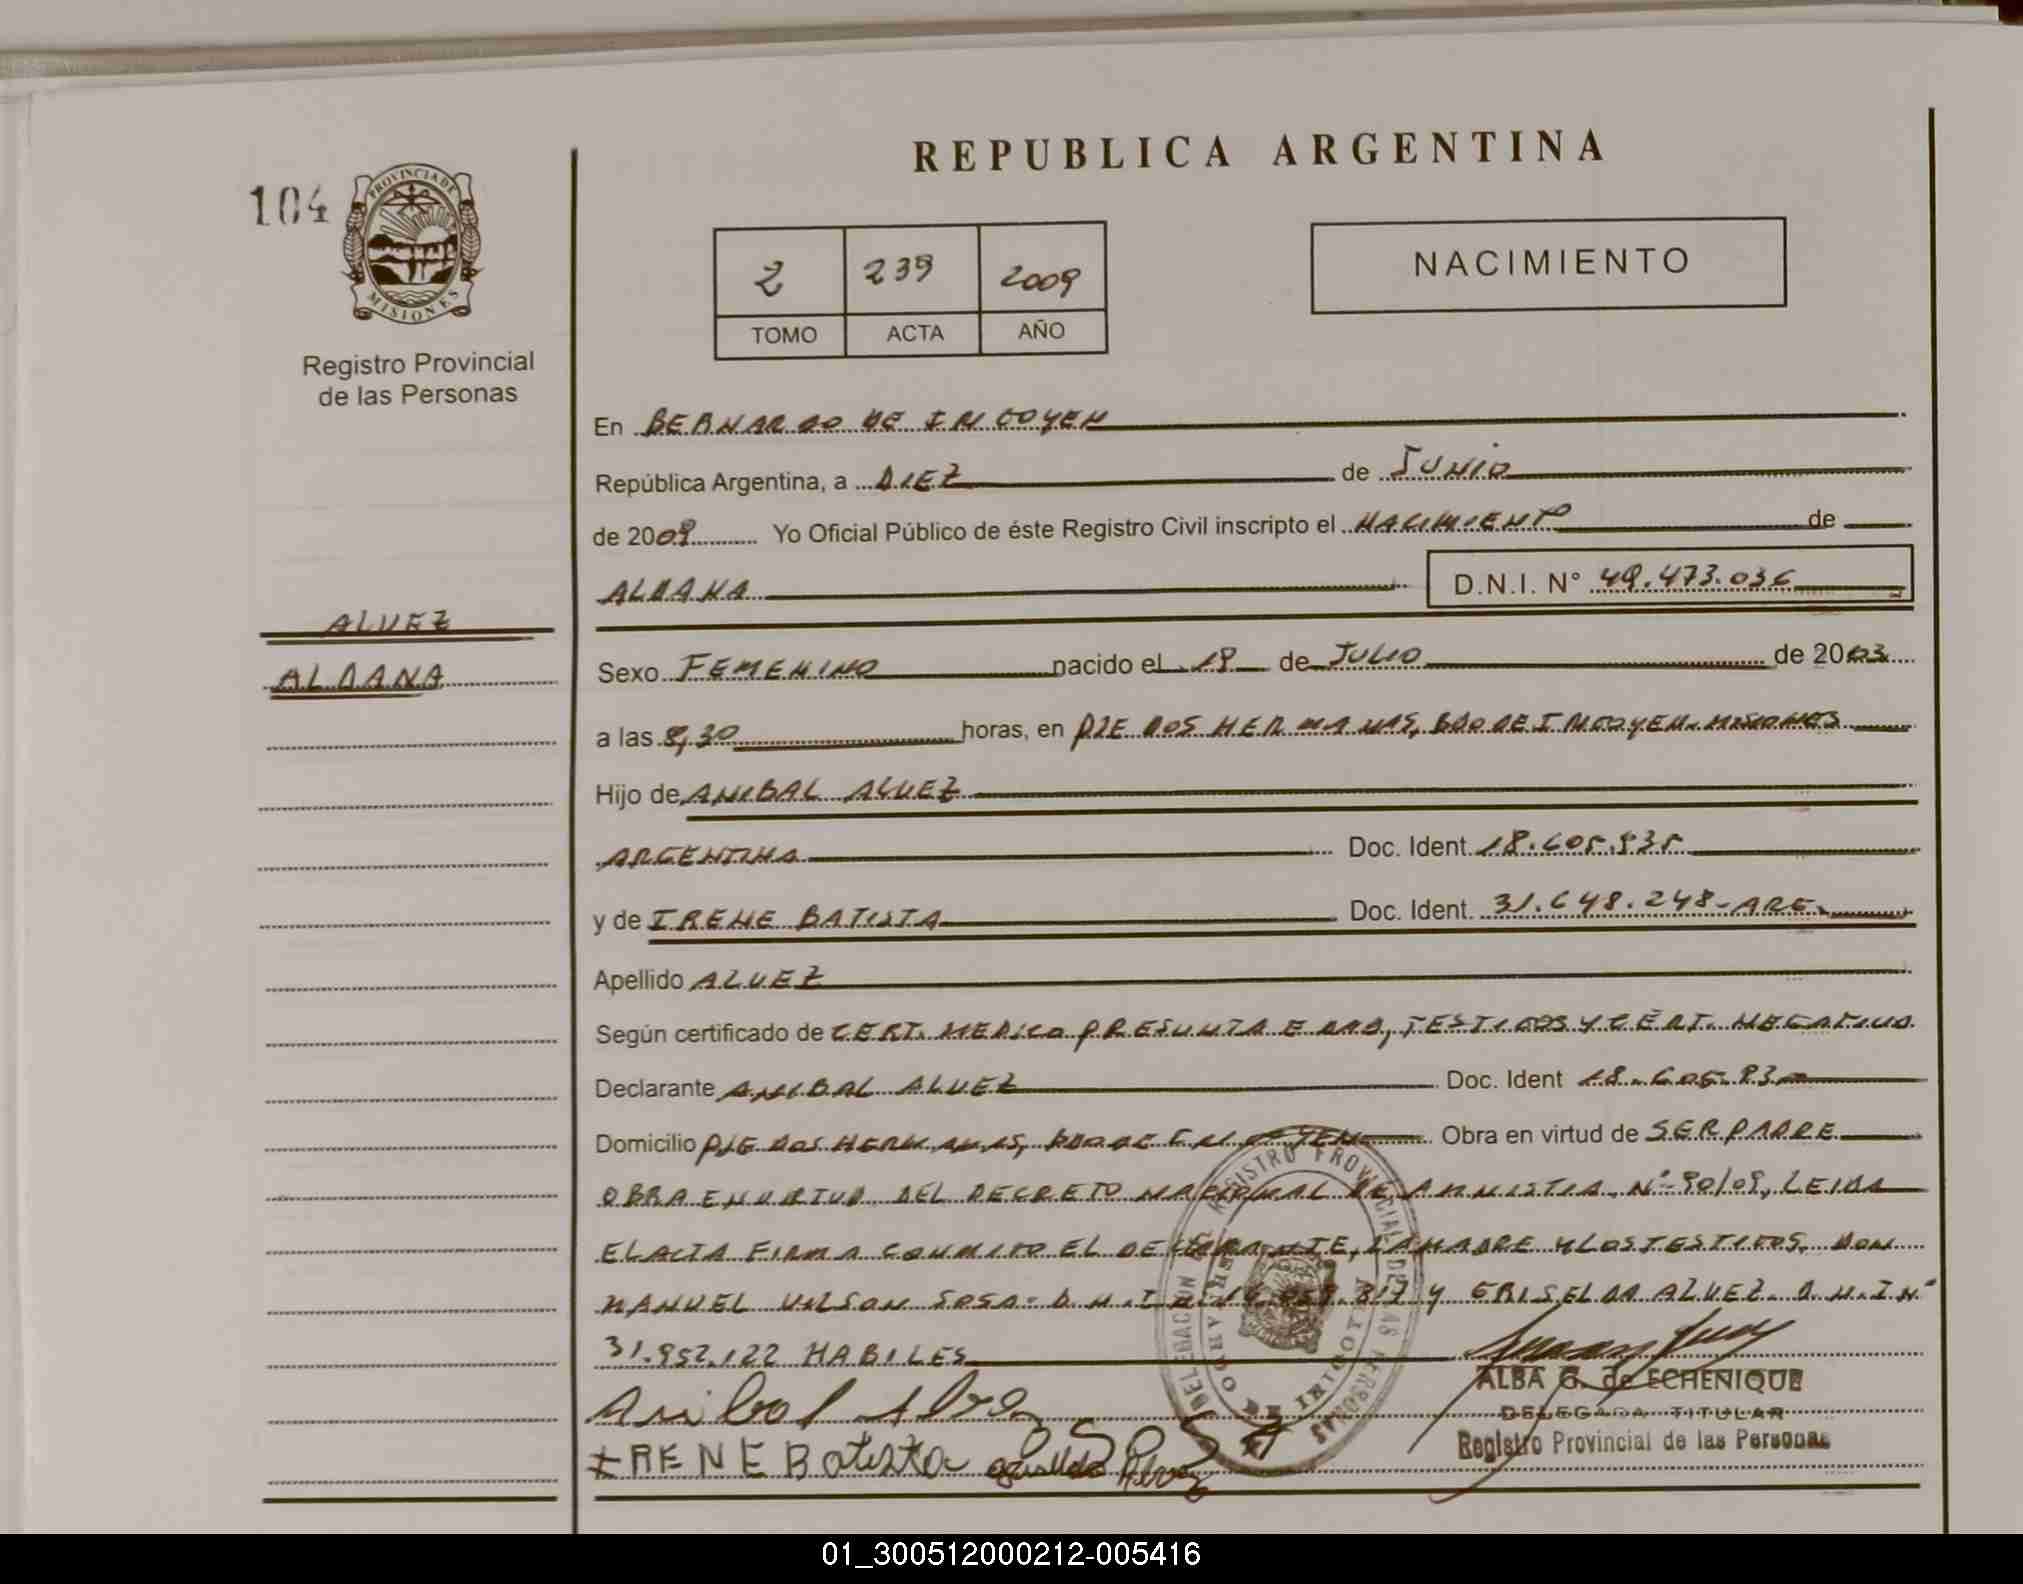 REPUBLICA ARGENTINA
104
PROVINCIA DE
MISIONES
Registro Provincial
de las Personas
2 239 2009
TOMO ACTA AÑO
NACIMIENTO
En BERNARDO DE IRIGOYEN
República Argentina, a DIEZ de JUNIO
de 2009 Yo Oficial Público de éste Registro Civil inscripto el NACIMIENTO de
ALDANA D.N.I. N° 49.473.036
ALVEZ
ALDANA
Sexo FEMENINO nacido el 18 de JULIO de 2003
a las 8,30 horas, en PJE DOS HERMANAS, BDO DE IRIGOYEN. MISIONES
Hijo de ANIBAL ALVEZ
ARGENTINA Doc. Ident. 18.605.935
y de IRENE BATISTA Doc. Ident. 31.648.248-ARG.
Apellido ALVEZ
Según certificado de CERT. MEDICO PRESUNTA EDAD, TESTIGOS Y CERT. NEGATIVO
Declarante ANIBAL ALVEZ Doc. Ident 18.605.93
Domicilio PJE DOS HERMANAS, BDO DE IRIGOYEN Obra en virtud de SER PADRE
OBRA EN VIRTUD DEL DECRETO NACIONAL DE AMNISTIA. N° 90/09, LEIDA
EL ACTA FIRMA CONMIGO EL DECLARANTE, LA MADRE Y LOS TESTIGOS. DON
MANUEL WILSON SOSA- D.N.I. N° 317 Y GRISELDA ALVEZ. D.N.I N°
31.952.122 HABILES
Anibal Alvez
IRENE Batista SOSA
Griselda Alvez
DELEGACION DEL REGISTRO PROVINCIAL DE LAS PERSONAS
BERNARDO DE IRIGOYEN
ALBA G. de ECHENIQUE
DELEGADA TITULAR
Registro Provincial de las Personas
01_300512000212-005416